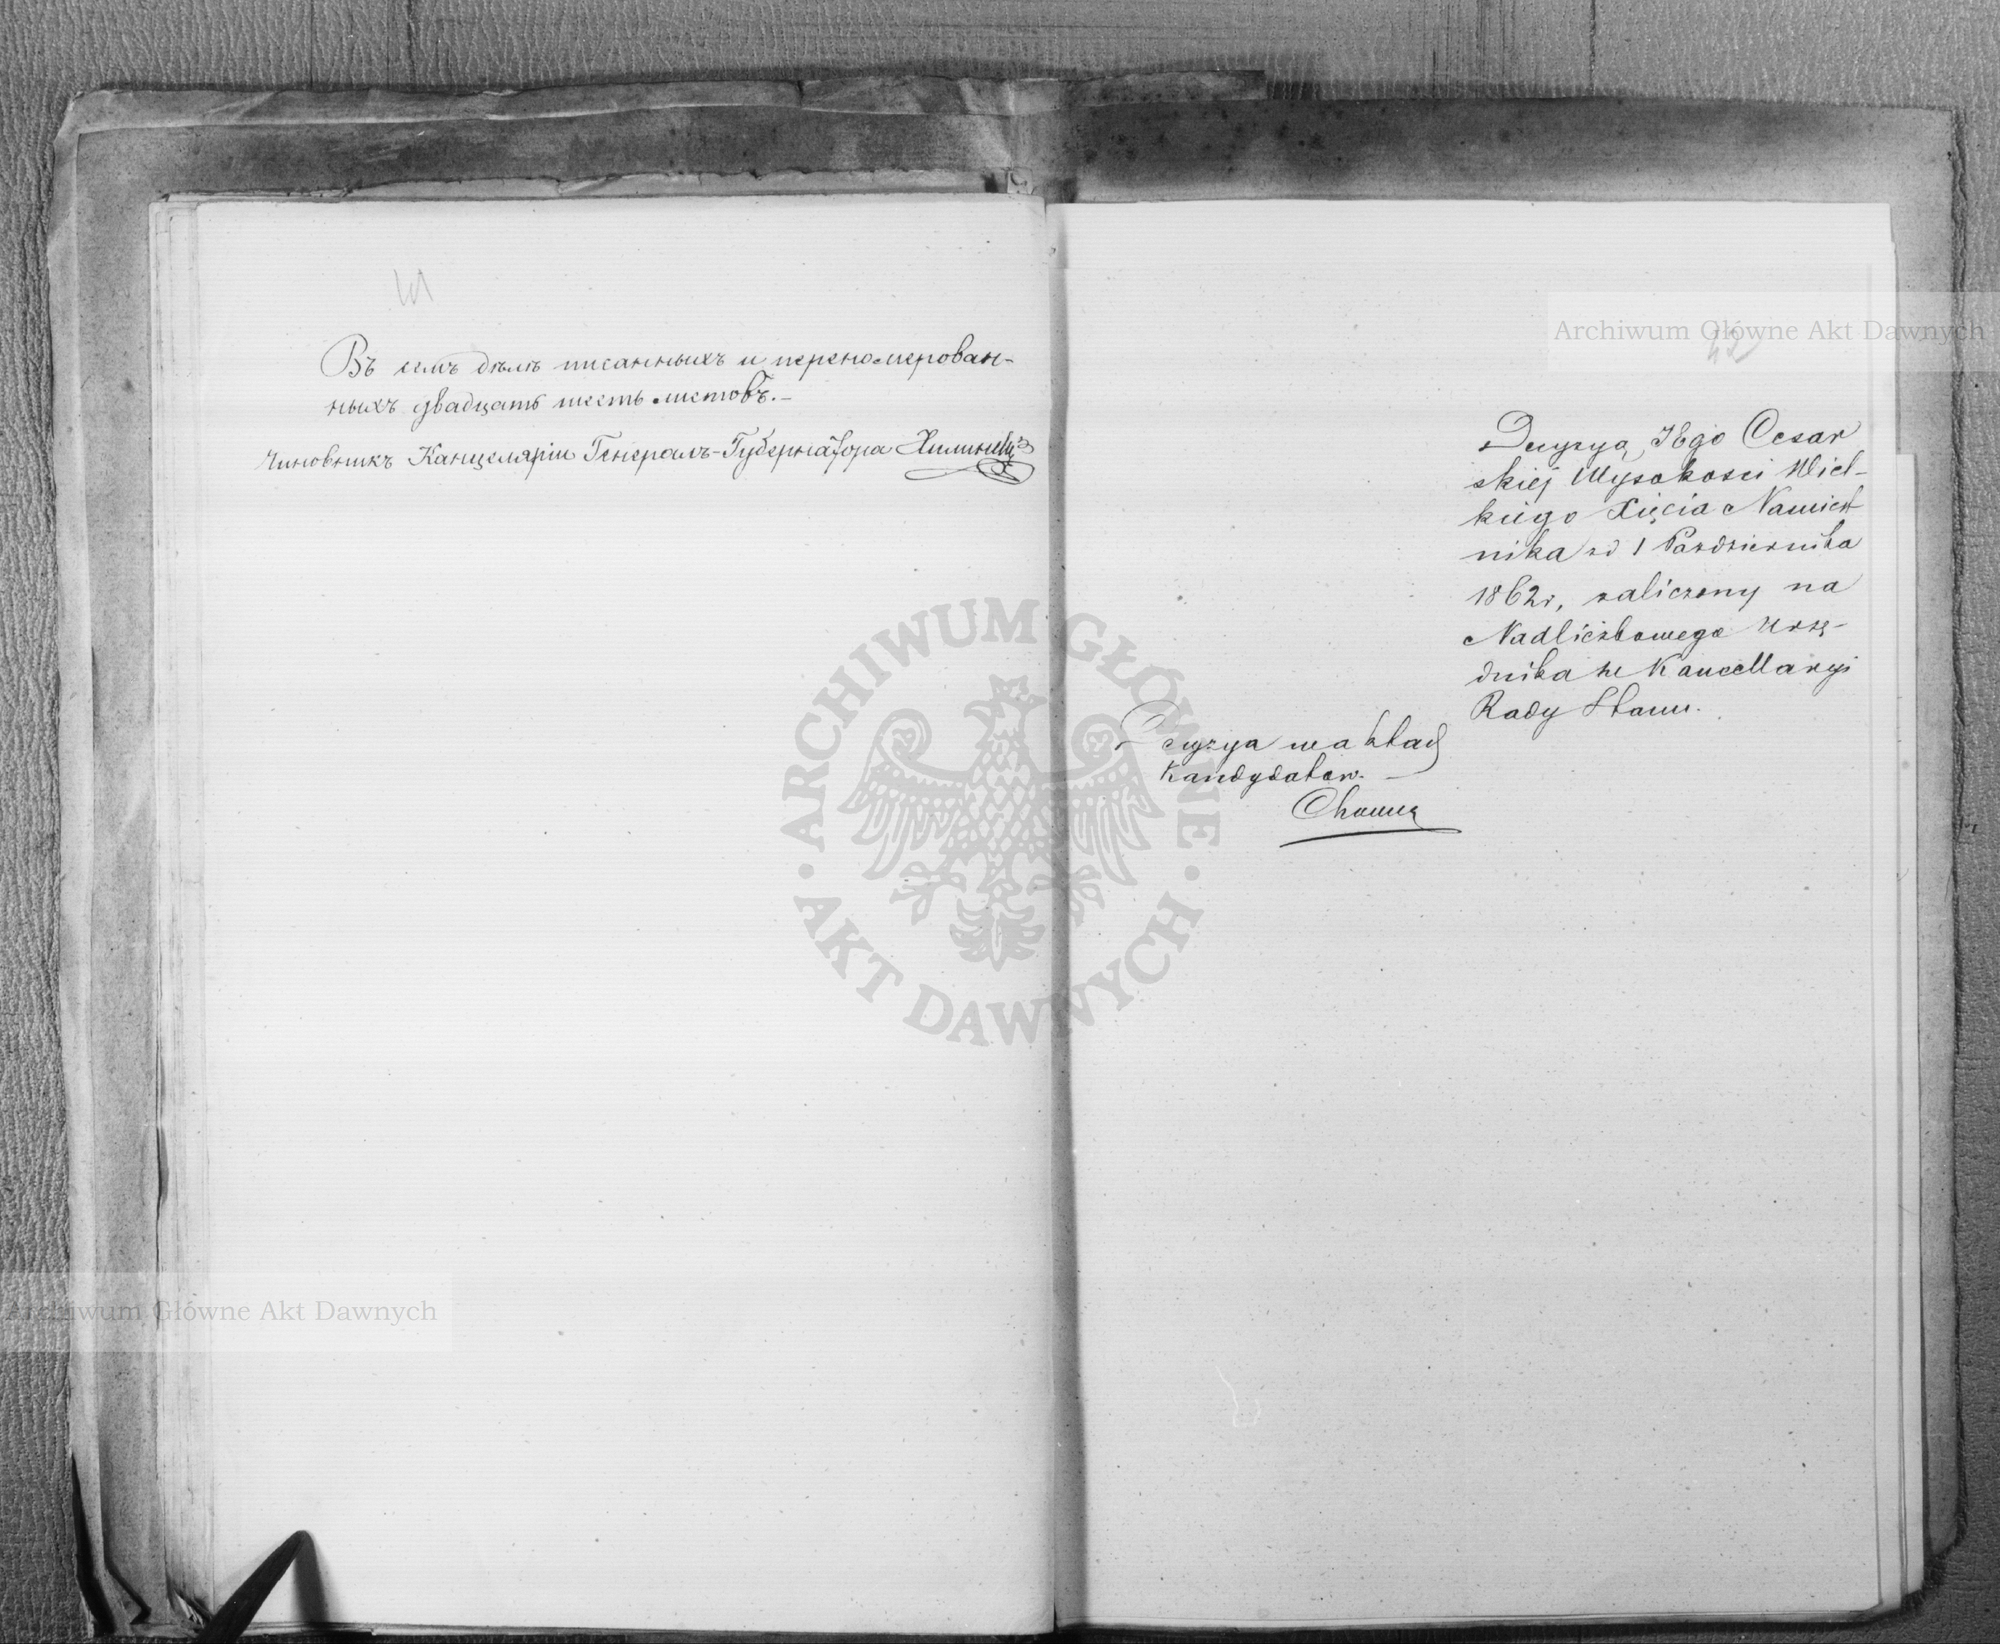 41
Въ семъ дѣлѣ писанныхъ и переномерован-
ныхъ двадцать шесть листовъ.–
Чиновникъ Канцеляріи Генералъ-Губернатора
42
Decyzyą JEgo Cesar
skiéj Wysokości Wiel-
kiego Xięcia Namiest
nika zd 1 Października
1862 r, zaliczony na
Nadliczbowego Urzę-
dnika w Kancellaryi
Rady Stanu.
Decyzya w aktach
Kandydatów. –
Archiwum Główne Akt Dawnych
ARCHIWUM GŁÓWNE AKT DAWNYCH
Archiwum Główne Akt Dawnych